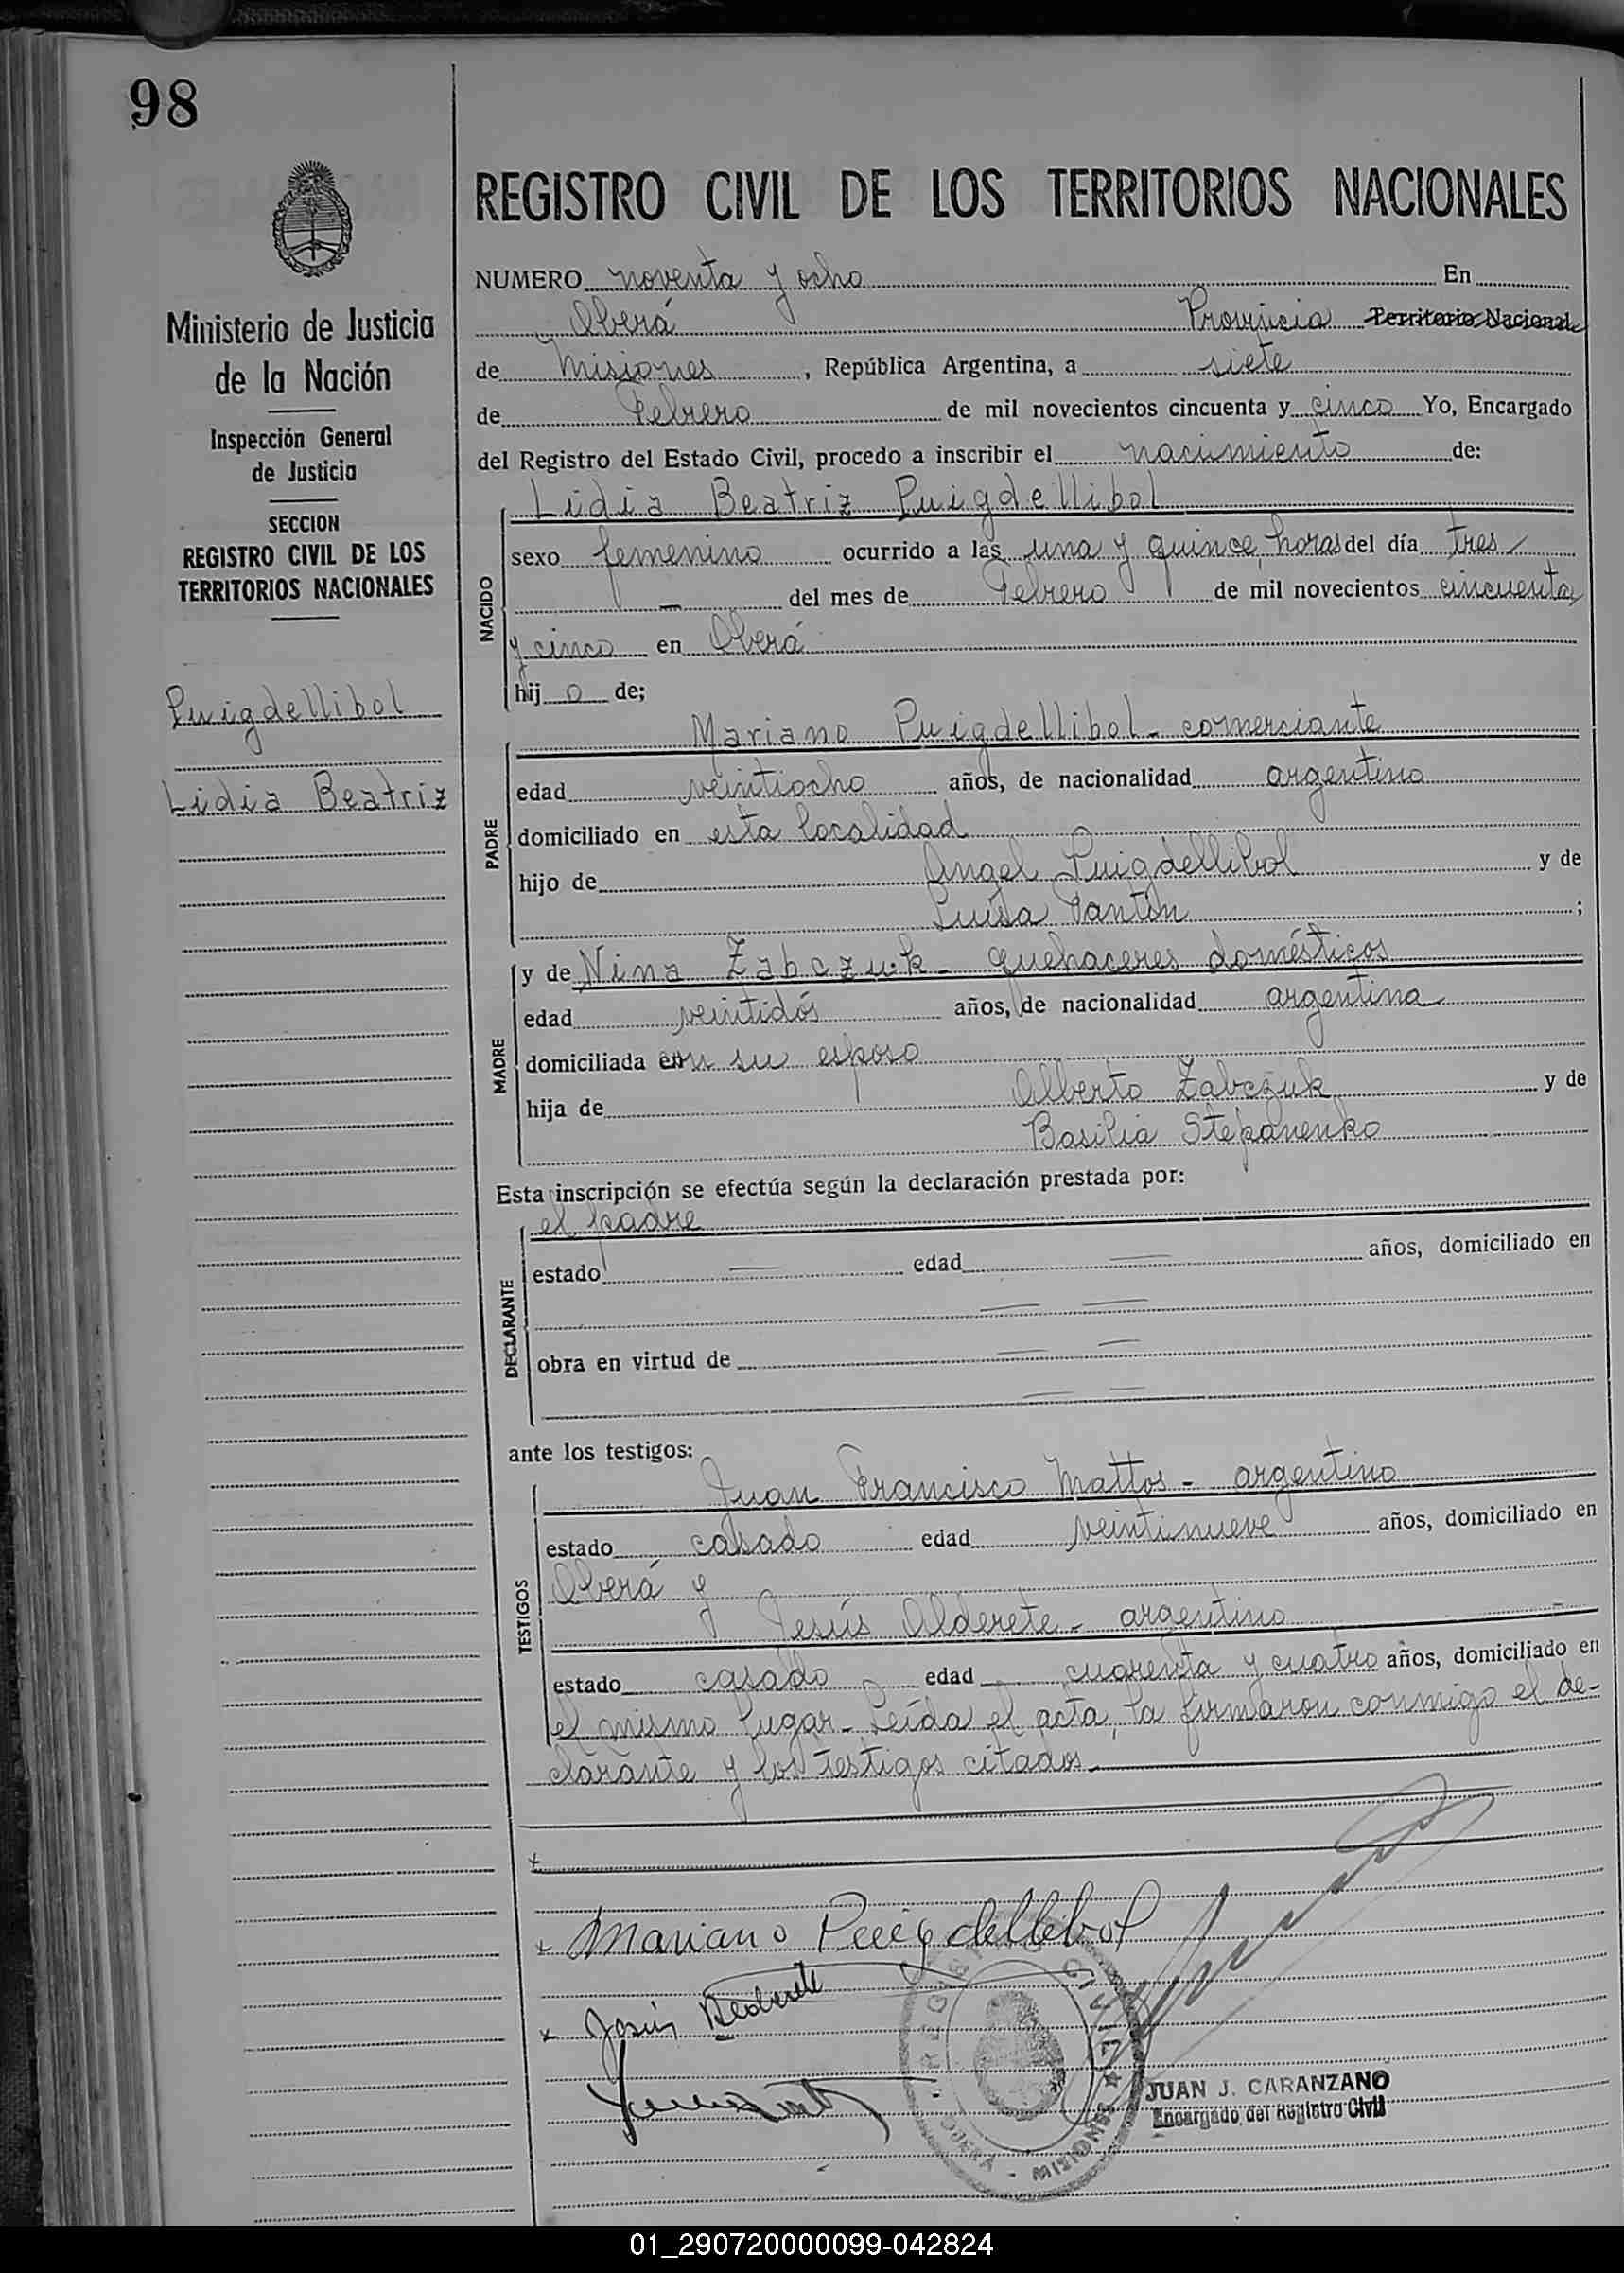 98
REGISTRO CIVIL DE LOS TERRITORIOS NACIONALES
Ministerio de Justicia
de la Nación
Inspección General
de Justicia
SECCION
REGISTRO CIVIL DE LOS
TERRITORIOS NACIONALES
Puigdellibol
Lidia Beatriz
NUMERO noventa y ocho En
Oberá Provincia Territorio Nacional
de Misiones, República Argentina, a siete
de Febrero de mil novecientos cincuenta y cinco Yo, Encargado
del Registro del Estado Civil, procedo a inscribir el nacimiento de:
Lidia Beatriz Puigdellibol
NACIDO
sexo femenino ocurrido a las una y quince horas del día tres
— del mes de Febrero de mil novecientos cincuenta
y cinco en Oberá
hij a de;
Mariano Puigdellibol - comerciante
PADRE
edad veintiocho años, de nacionalidad argentino
domiciliado en esta localidad
hijo de Angel Puigdellibol y de
Luisa Pantin;
MADRE
y de Nina Zabczuk - quehaceres domésticos
edad veintidós años, de nacionalidad argentina
domiciliada en su esposo
hija de Alberto Zabczuk y de
Basilia Stepanenko
Esta inscripción se efectúa según la declaración prestada por:
el padre
DECLARANTE
estado — edad — años, domiciliado en
— —
obra en virtud de — —
— —
ante los testigos:
Juan Francisco Mattos - argentino
TESTIGOS
estado casado edad veintinueve años, domiciliado en
Oberá y
Jesús Alderete - argentino
estado casado edad cuarenta y cuatro años, domiciliado en
el mismo lugar - Leída el acta, la firmaron conmigo el de-
clarante y los testigos citados.
Mariano Puigdellibol
Jesús Alderete
REGISTRO CIVIL
OBERA - MISIONES
JUAN J. CARANZANO
Encargado del Registro Civil
01_290720000099-042824